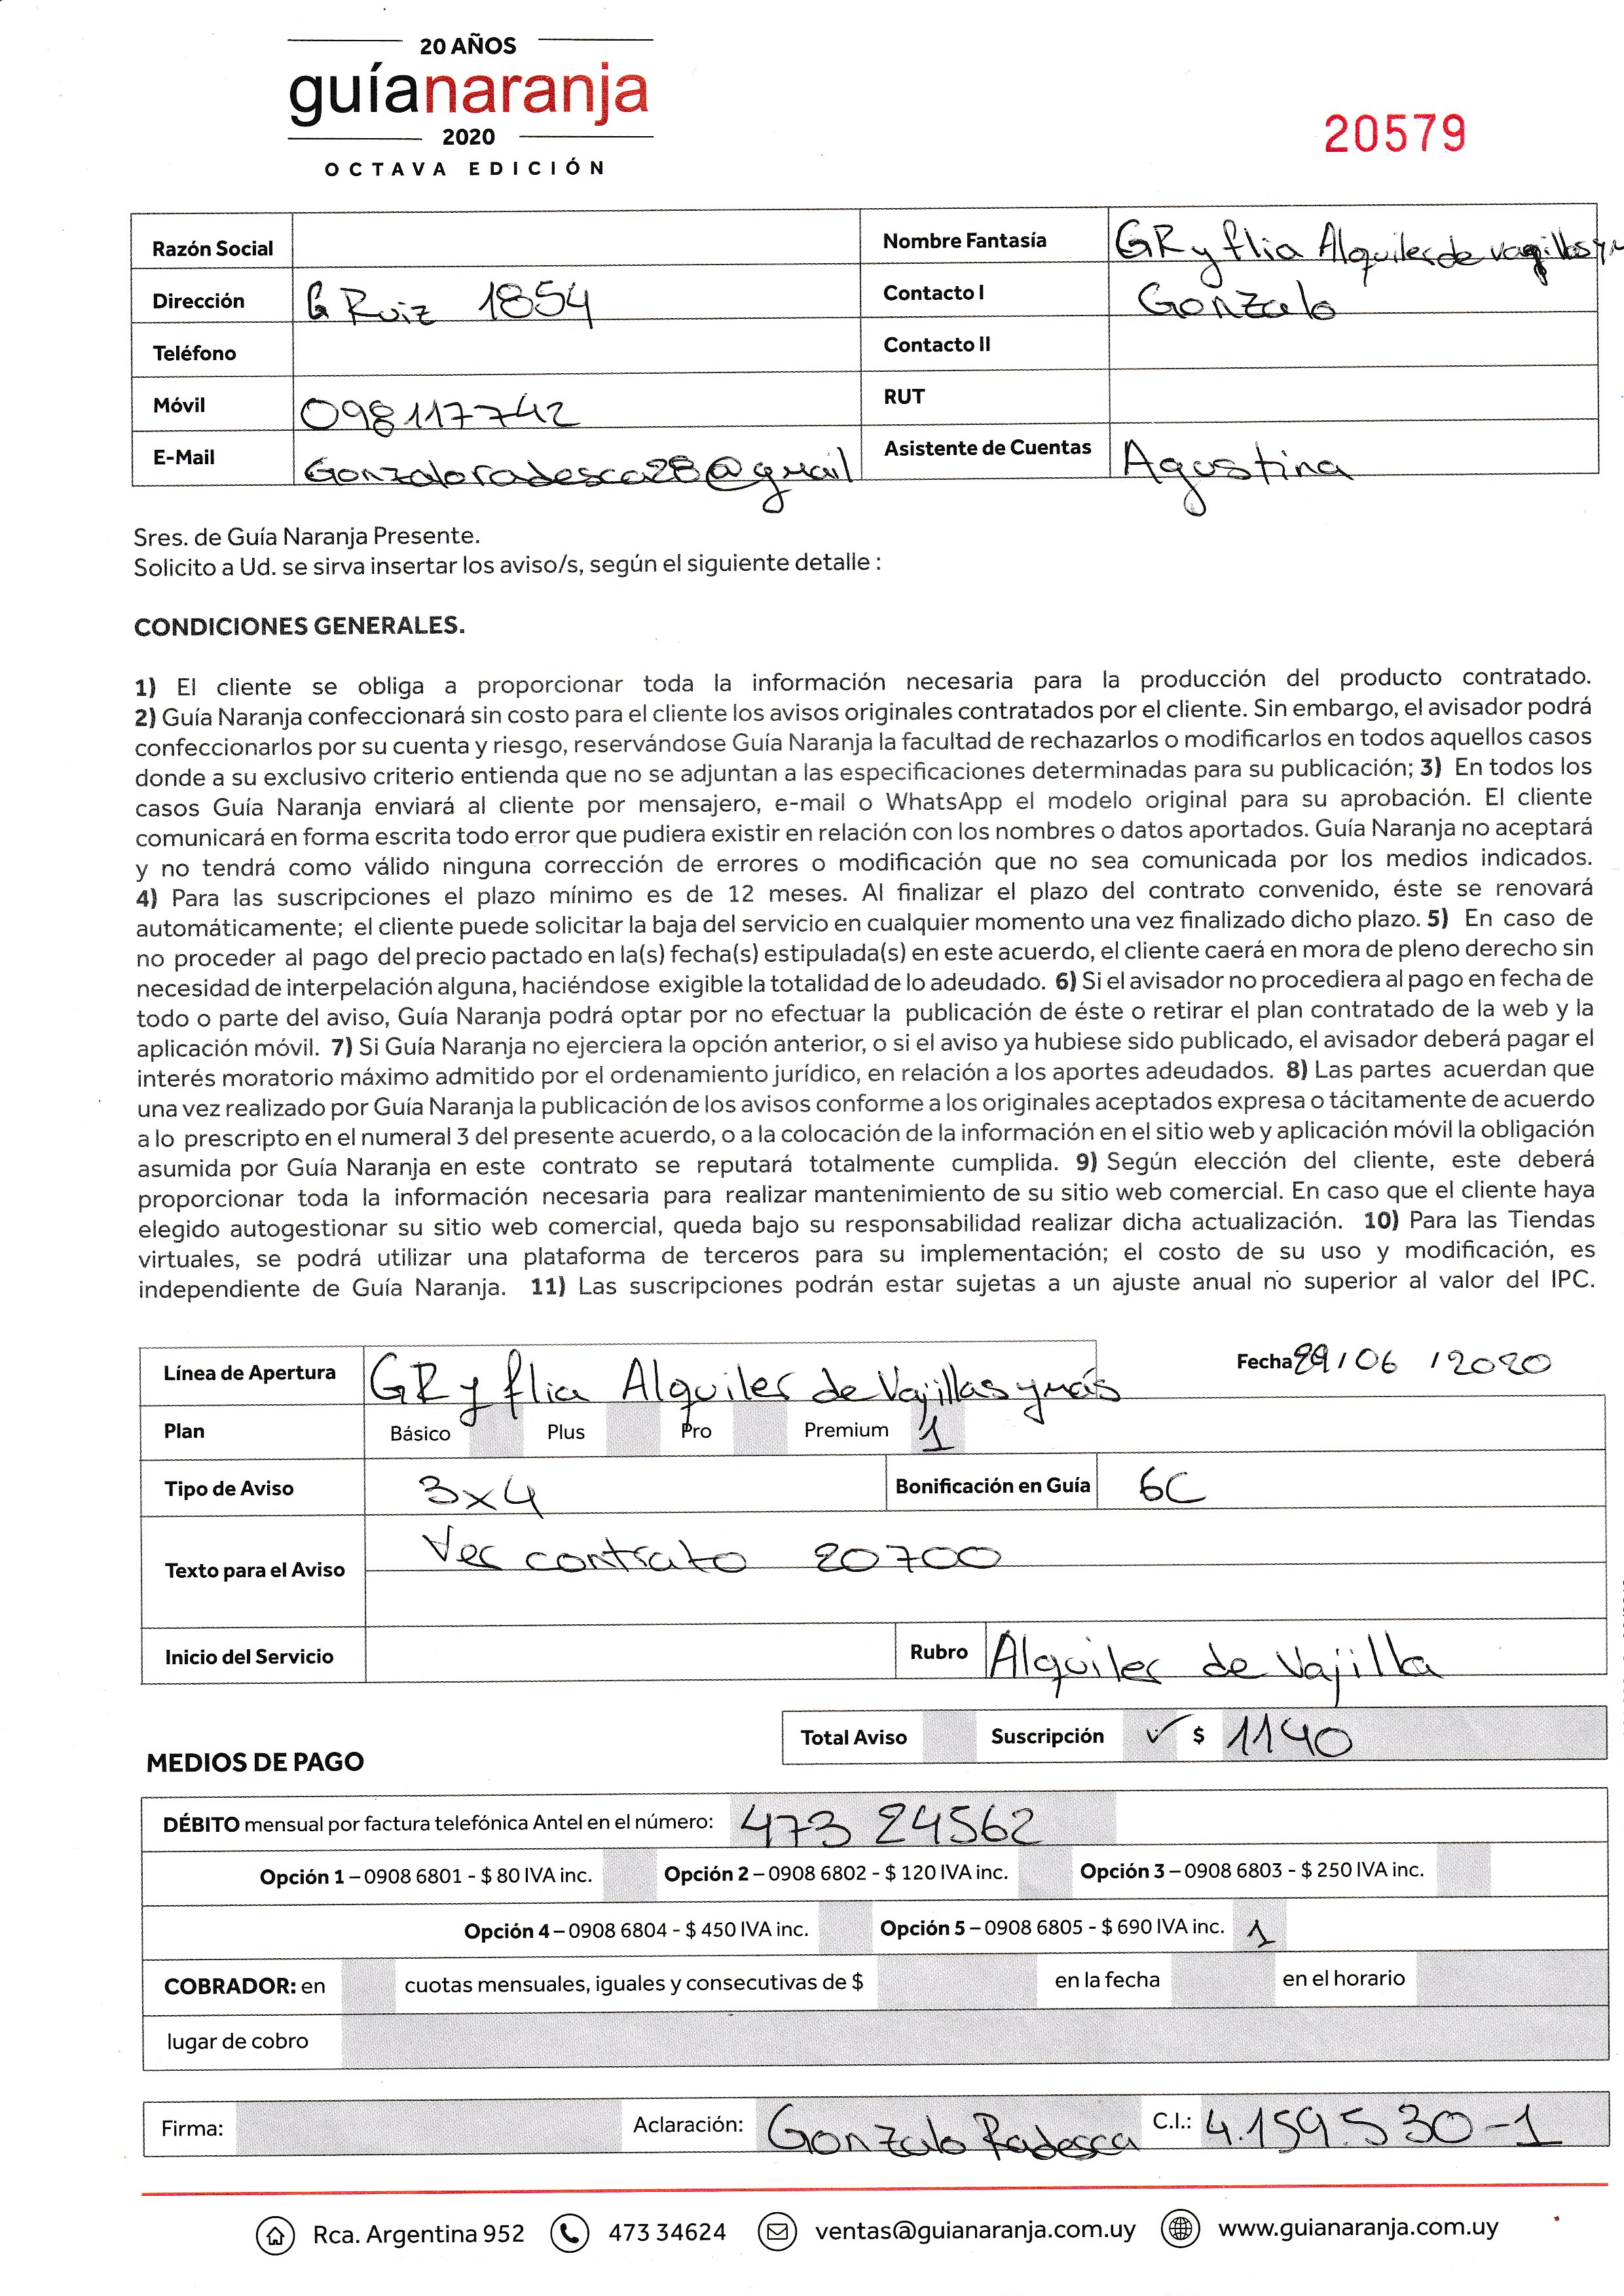 20 AÑOS
guíanaranja
2020
OCTAVA EDICIÓN
20579
Razón Social
Nombre Fantasía GR y flia Alquiler de vagillas y
Dirección G Ruiz 1854
Contacto I Gonzalo
Teléfono
Contacto II
Móvil 098117742
RUT
E-Mail Gonzaloradesca28@gmail
Asistente de Cuentas Agustina
Sres. de Guía Naranja Presente.
Solicito a Ud. se sirva insertar los aviso/s, según el siguiente detalle :
CONDICIONES GENERALES.
1) El cliente se obliga a proporcionar toda la información necesaria para la producción del producto contratado.
2) Guía Naranja confeccionará sin costo para el cliente los avisos originales contratados por el cliente. Sin embargo, el avisador podrá
confeccionarlos por su cuenta y riesgo, reservándose Guía Naranja la facultad de rechazarlos o modificarlos en todos aquellos casos
donde a su exclusivo criterio entienda que no se adjuntan a las especificaciones determinadas para su publicación; 3) En todos los
casos Guía Naranja enviará al cliente por mensajero, e-mail o WhatsApp el modelo original para su aprobación. El cliente
comunicará en forma escrita todo error que pudiera existir en relación con los nombres o datos aportados. Guía Naranja no aceptará
y no tendrá como válido ninguna corrección de errores o modificación que no sea comunicada por los medios indicados.
4) Para las suscripciones el plazo mínimo es de 12 meses. Al finalizar el plazo del contrato convenido, éste se renovará
automáticamente; el cliente puede solicitar la baja del servicio en cualquier momento una vez finalizado dicho plazo. 5) En caso de
no proceder al pago del precio pactado en la(s) fecha(s) estipulada(s) en este acuerdo, el cliente caerá en mora de pleno derecho sin
necesidad de interpelación alguna, haciéndose exigible la totalidad de lo adeudado. 6) Si el avisador no procediera al pago en fecha de
todo o parte del aviso, Guía Naranja podrá optar por no efectuar la publicación de éste o retirar el plan contratado de la web y la
aplicación móvil. 7) Si Guía Naranja no ejerciera la opción anterior, o si el aviso ya hubiese sido publicado, el avisador deberá pagar el
interés moratorio máximo admitido por el ordenamiento jurídico, en relación a los aportes adeudados. 8) Las partes acuerdan que
una vez realizado por Guía Naranja la publicación de los avisos conforme a los originales aceptados expresa o tácitamente de acuerdo
a lo prescripto en el numeral 3 del presente acuerdo, o a la colocación de la información en el sitio web y aplicación móvil la obligación
asumida por Guía Naranja en este contrato se reputará totalmente cumplida. 9) Según elección del cliente, este deberá
proporcionar toda la información necesaria para realizar mantenimiento de su sitio web comercial. En caso que el cliente haya
elegido autogestionar su sitio web comercial, queda bajo su responsabilidad realizar dicha actualización. 10) Para las Tiendas
virtuales, se podrá utilizar una plataforma de terceros para su implementación; el costo de su uso y modificación, es
independiente de Guía Naranja. 11) Las suscripciones podrán estar sujetas a un ajuste anual no superior al valor del IPC.
Línea de Apertura GR y flia Alquiler de Vajillas y más
Fecha 29/06/2020
Plan Básico Plus Pro Premium 1
Tipo de Aviso 3x4
Bonificación en Guía 6C
Texto para el Aviso Ver contrato 20700
Inicio del Servicio
Rubro Alquiler de Vajilla
Total Aviso Suscripción ✓ $ 1140
MEDIOS DE PAGO
DÉBITO mensual por factura telefónica Antel en el número: 473 24562
Opción 1 – 0908 6801 - $ 80 IVA inc. Opción 2 – 0908 6802 - $ 120 IVA inc. Opción 3 – 0908 6803 - $ 250 IVA inc.
Opción 4 – 0908 6804 - $ 450 IVA inc. Opción 5 – 0908 6805 - $ 690 IVA inc. 1
COBRADOR: en cuotas mensuales, iguales y consecutivas de $ en la fecha en el horario
lugar de cobro
Firma: Aclaración: Gonzalo Radesca C.I.: 4.159.530-1
Rca. Argentina 952 473 34624 ventas@guianaranja.com.uy www.guianaranja.com.uy